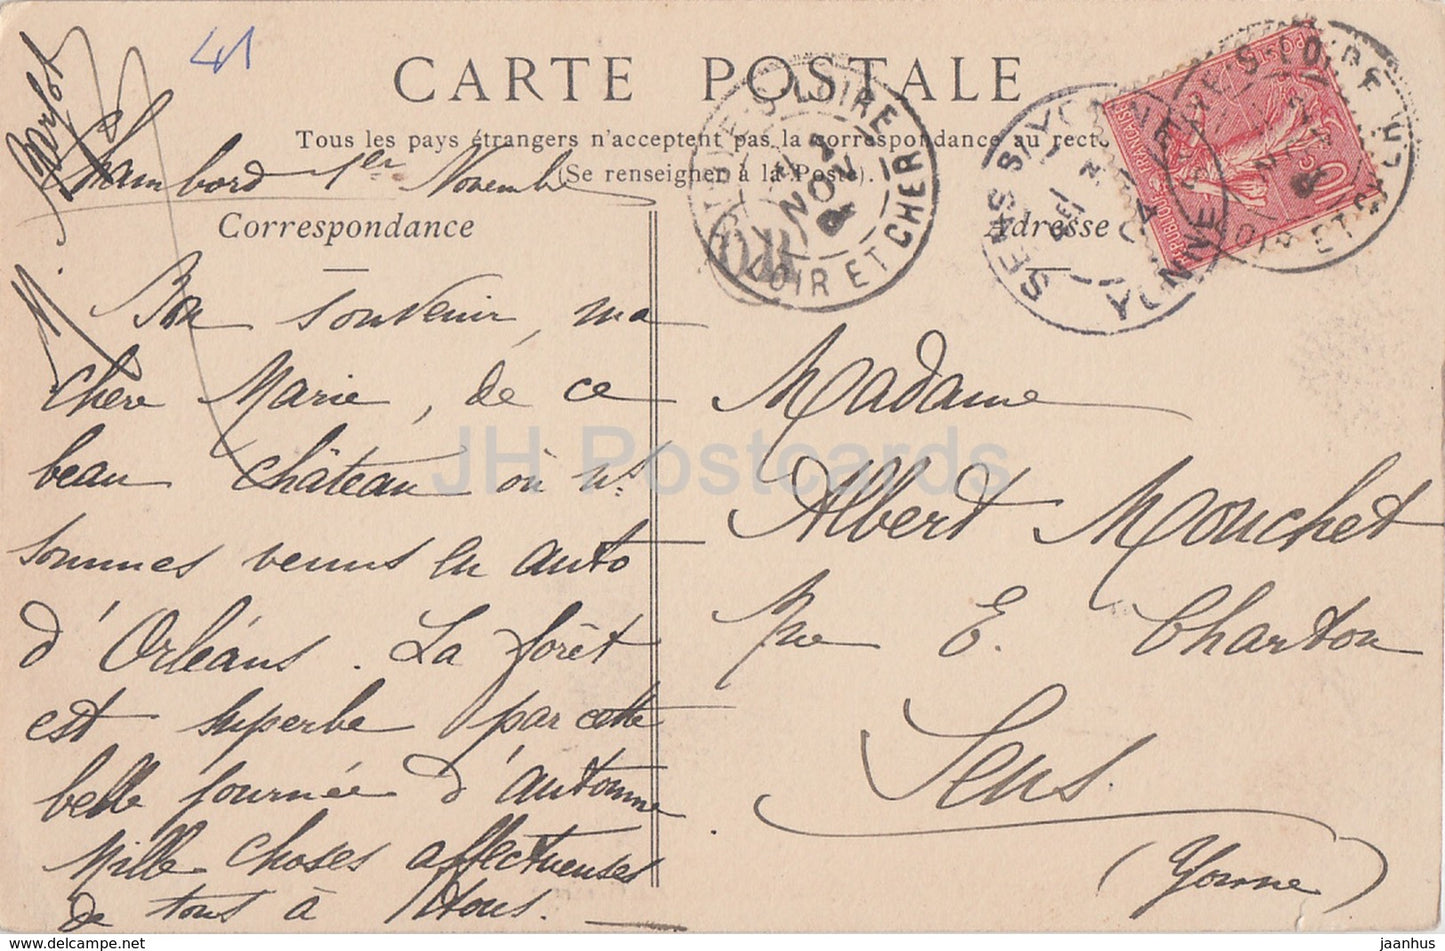 41
CARTE POSTALE
Tous les pays étrangers n'acceptent pas la correspondance au recto
(Se renseigner à la Poste).
Chambord 1er Novembre
Correspondance
Adresse
Bon souvenir, ma
chère Marie, de ce
beau château où ns
sommes venus en auto
d'Orléans. La forêt
est superbe par cette
belle journée d'automne
Mille choses affectueuses
de tous à tous.
Madame
Albert Mouchet
Rue E. Charton
Sens.
(Yonne)
S-LOIRE
NOV
LOIR ET CHER
OR
SENS S/YONNE
YONNE
S-LOIRE
LOIR ET CHER
POSTES
REPUBLIQUE FRANÇAISE
10c
JH Postcards
jaanhus